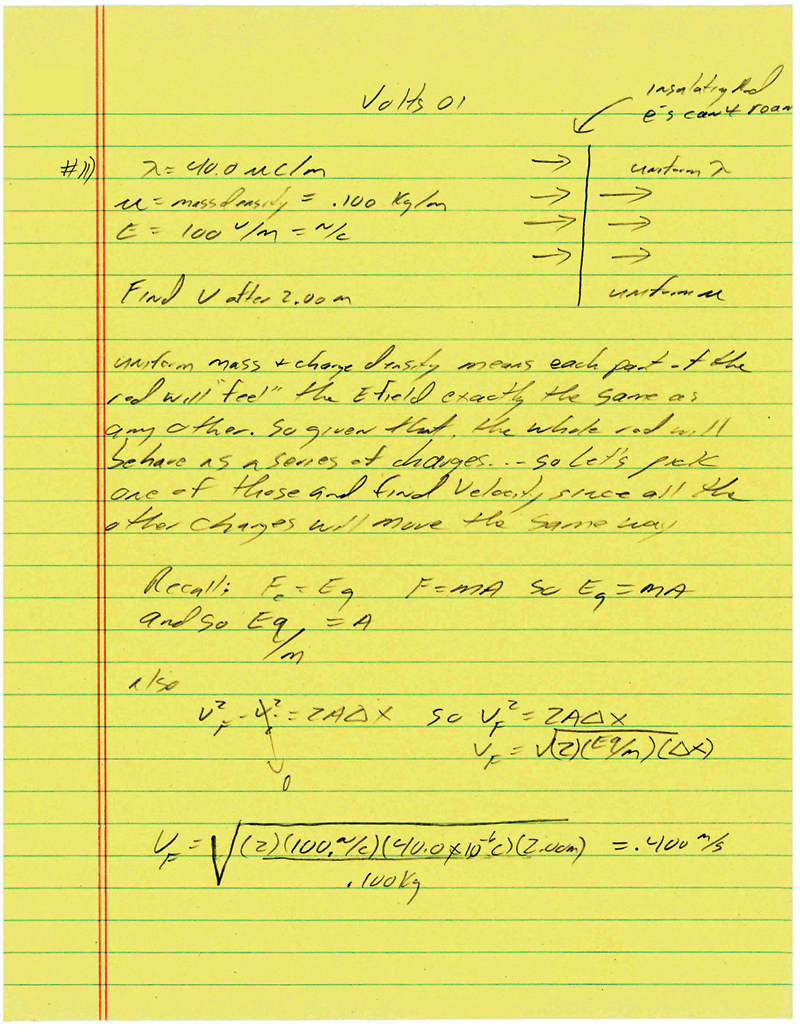 Volts 01
insulating Rod
e⁻s can't roam
#11)
λ = 40.0 μC/m
uniform λ
μ = mass density = .100 Kg/m
E = 100 V/m = N/C
Find V after 2.00m
uniform μ
uniform mass + charge density means each part of the
rod will "feel" the E field exactly the same as
any other. So given that, the whole rod will
behave as a series of charges... so Let's pick
one of those and find Velocity, since all the
other charges will move the same way
Recall: F_e = Eq F = mA so Eq = mA
and so Eq/m = A
also
V_F² - V_i² = 2AΔX so V_F² = 2AΔX
0
V_F = √(2)(Eq/m)(ΔX)
V_F = √(2)(100. N/C)(40.0 x 10⁻⁶ C)(2.00m) = .400 m/s
.100Kg